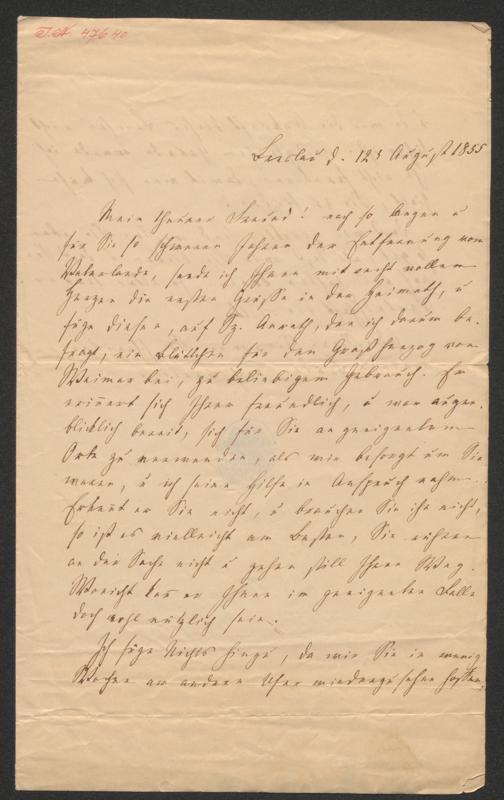 I.N. 47640
d. 123 August 1855
Mein theurer Freund! nach so langen u
für Sie so schweren Jahren der Entfernung vom
Vaterlande, sende ich Ihnen mit recht vollem
Herzen die ersten Grüsse in der Heimath, u
füge diesen, auf Anrath, den ich darum be-
fragt, ein Blättchen für den Großherzog von
Weimar bei, zu beliebigem Gebrauch. Er
erinnert sich Ihrer freundlich, u war augen-
blicklich bereit, sich für Sie an geeignetem
Orte zu verwenden, als wir besorgt um Sie
waren, u ich seine Hilfe in Anspruch nahm.
Erkennt er Sie nicht, u brauchen Sie ihn nicht,
so ist es vielleicht am Besten, Sie rühren
an der Sache nicht u gehen still Ihren Weg.
Vorsicht kann er Ihnen im geeigneten Falle
doch wohl nützlich sein.
Ich füge Nichts hinzu, da wir Sie in wenig
Wochen am andern Ufer wiederzusehen hoffen,